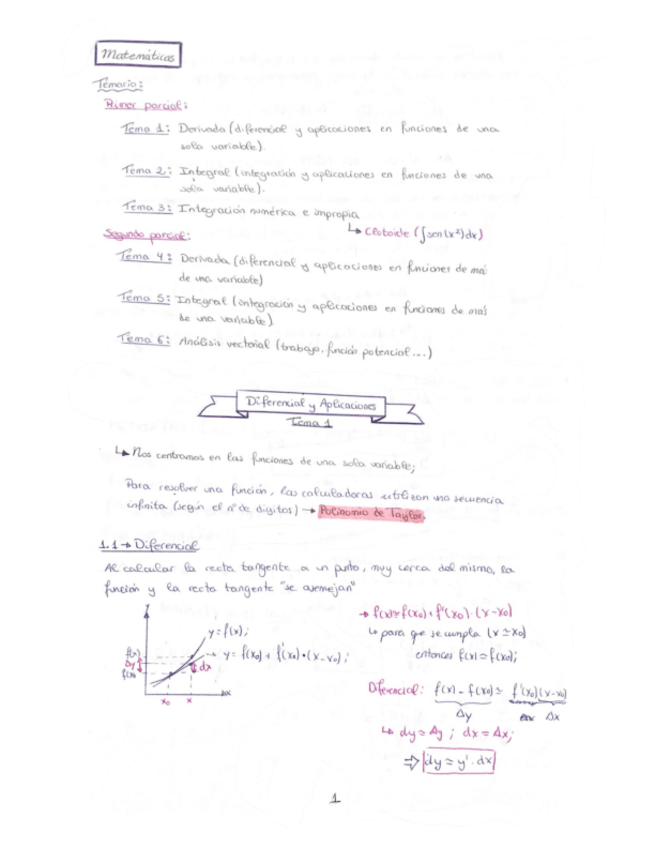 Matemáticas
Temario:
Primer parcial:
Tema 1: Derivada (diferencial y aplicaciones en funciones de una
sola variable).
Tema 2: Integral (integración y aplicaciones en funciones de una
sola variable).
Tema 3: Integración numérica e impropia
↳ Clotoide (∫sen(x²)dx)
Segundo parcial:
Tema 4: Derivada (diferencial y aplicaciones en funciones de má
de una variable)
Tema 5: Integral (integración y aplicaciones en funciones de más
de una variable)
Tema 6: Análisis vectorial (trabajo, función potencial...)
Diferencial y Aplicaciones
Tema 1
↳ Nos centramos en las funciones de una sola variable;
Para resolver una función, las calculadoras utilizan una secuencia
infinita (según el nº de dígitos) → Polinomio de Taylor.
1.1 → Diferencial
Al calcular la recta tangente a un punto, muy cerca del mismo, la
función y la recta tangente "se asemejan"
→ f(x)≃f(x₀)+f'(x₀)·(x-x₀)
y=f(x);
↳ para que se cumpla (x≃x₀)
f(x)
y=f(x₀)+f'(x₀)·(x-x₀);
entonces f(x)≃f(x₀);
Δy
dx
f(x₀
x₀ x
Diferencial: f(x)-f(x₀)≃f'(x₀)(x-x₀)
Δy Δx
↳ dy≃Δy; dx=Δx;
⇒ dy≃y'·dx
1